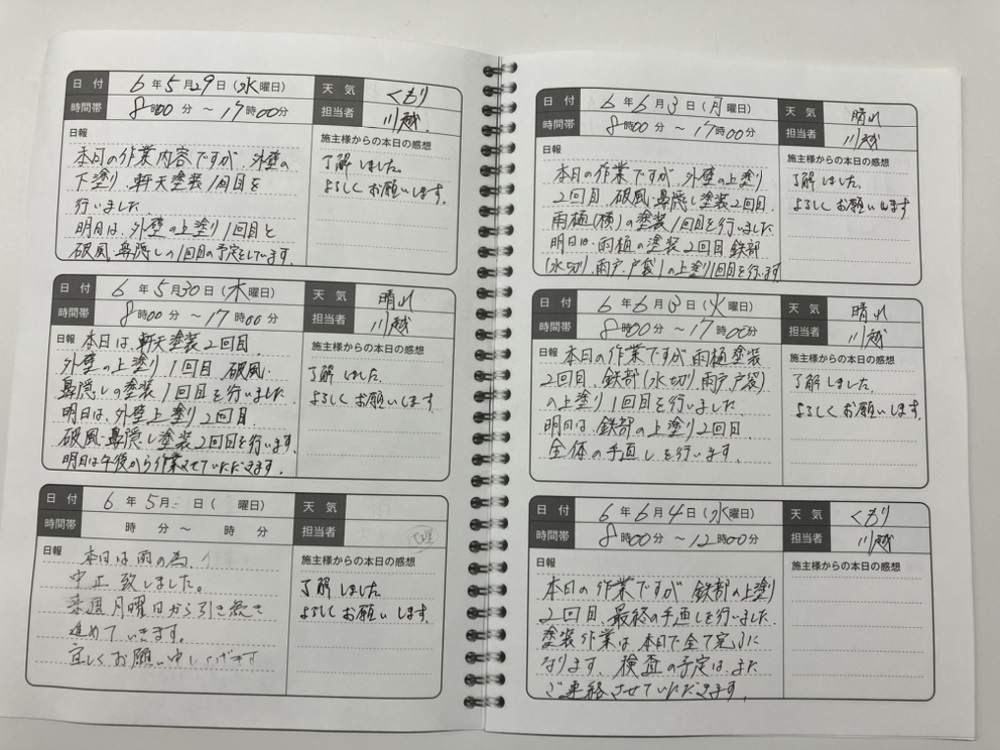 日付 6年5月29日(水曜日) 天気 くもり
時間帯 8時00分〜17時00分 担当者 川越
日報
本日の作業内容ですが、外壁の
下塗り、軒天塗装1回目を
行いました
明日は、外壁の上塗り1回目と
破風、鼻隠しの1回目の予定をしています
施主様からの本日の感想
了解しました。
よろしくお願いします。
日付 6年5月30日(木曜日) 天気 晴れ
時間帯 8時00分〜17時00分 担当者 川越
日報 本日は、軒天塗装2回目、
外壁の上塗り1回目 破風・
鼻隠しの塗装1回目を行いました
明日は、外壁上塗り2回目、
破風・鼻隠し塗装2回目を行います。
明日は午後から作業させていただきます。
施主様からの本日の感想
了解しました。
よろしくお願いします。
日付 6年5月 日( 曜日) 天気
時間帯 時 分〜 時 分 担当者
日報 本日は雨の為、
中止致しました。
来週月曜日から引き続き
進めていきます。
宜しくお願い申し上げます
施主様からの本日の感想
了解しました
よろしくお願いします。
日付 6年6月3日(月曜日) 天気 晴れ
時間帯 8時00分〜17時00分 担当者 川越
日報
本日の作業ですが、外壁の上塗り
2回目、破風、鼻隠し塗装2回目、
雨樋(横)の塗装1回目を行いました
明日は、雨樋の塗装2回目 鉄部
(水切り、雨戸、戸袋)の上塗り1回目を行います
施主様からの本日の感想
了解しました。
よろしくお願いします
日付 6年6月3日(火曜日) 天気 晴れ
時間帯 8時00分〜17時00分 担当者 川越
日報 本日の作業ですが 雨樋塗装
2回目、鉄部(水切り、雨戸、戸袋)
の上塗り1回目を行いました
明日は、鉄部の上塗り2回目、
全体の手直しを行います。
施主様からの本日の感想
了解しました。
よろしくお願いします。
日付 6年6月4日(水曜日) 天気 くもり
時間帯 8時00分〜12時00分 担当者 川越
日報
本日の作業ですが 鉄部の上塗り
2回目、最終の手直しを行いました
塗装作業は、本日で全て完了に
なります、検査の予定は、また
ご連絡させていただきます。
施主様からの本日の感想